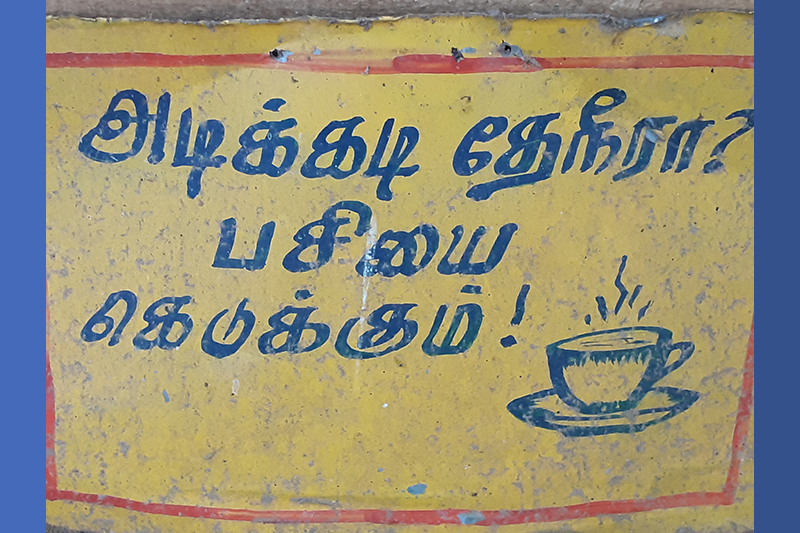 அடிக்கடி தேநீரா?
பசியை
கெடுக்கும்!